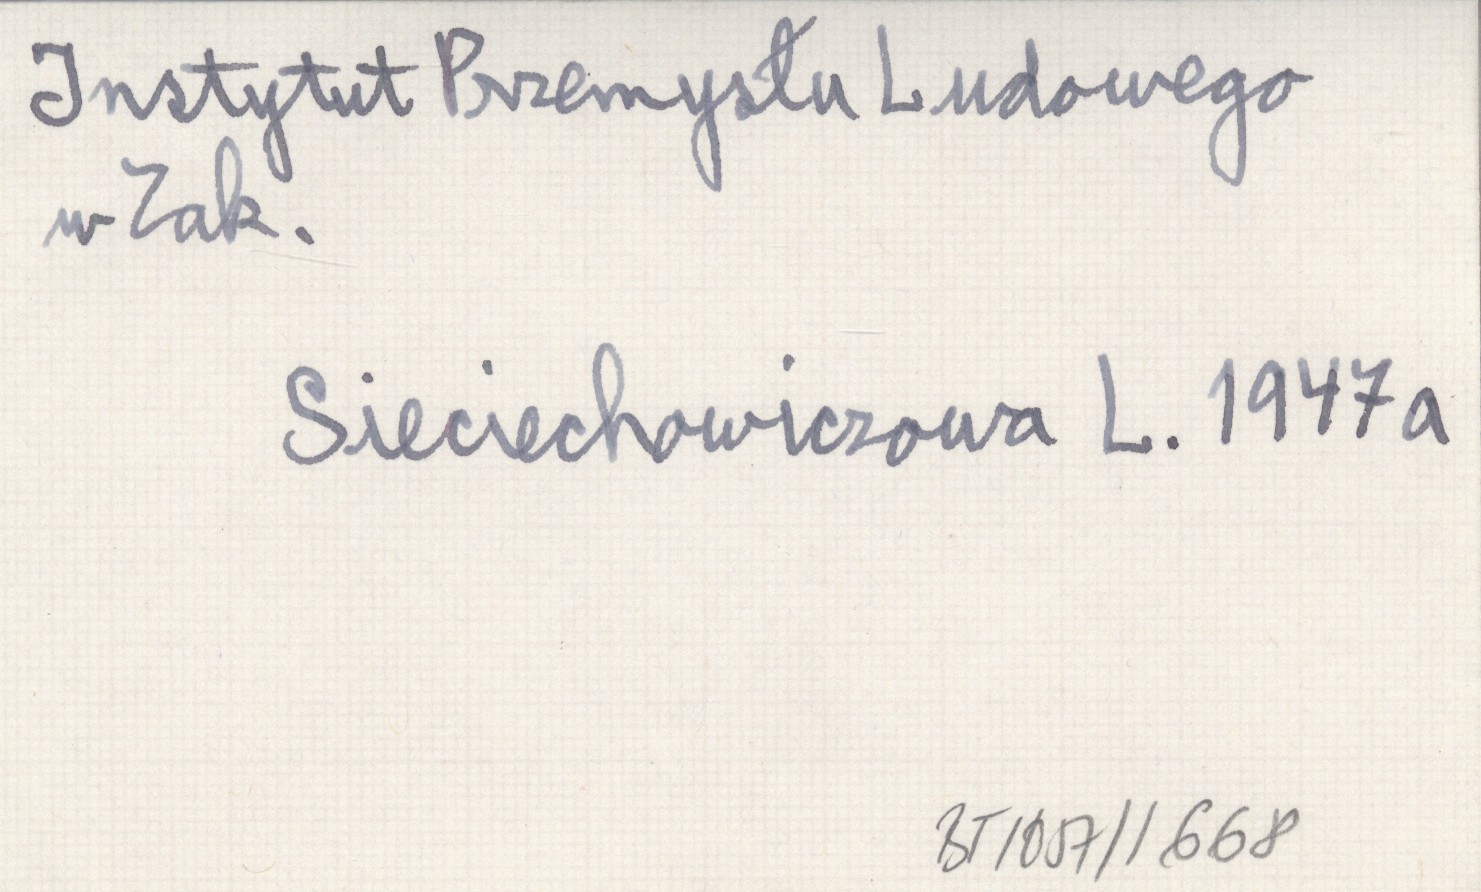 Instytut Przemysłu Ludowego
w Zak.
Sieciechowiczowa L. 1947a
BT/057/1668